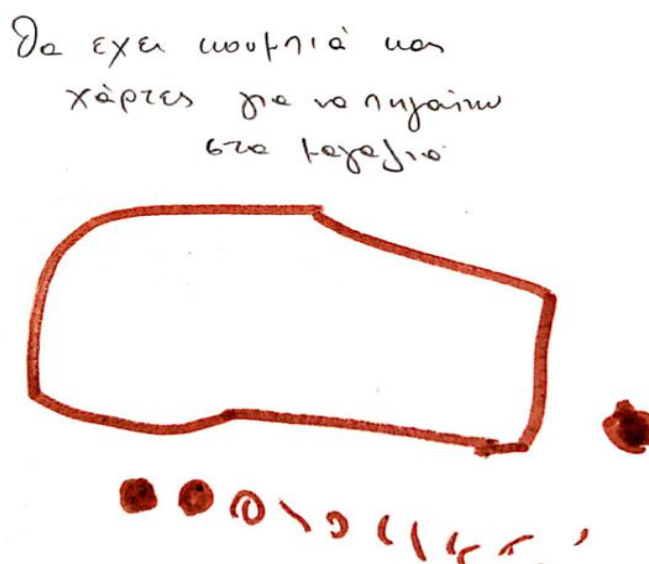 Θα εχει κουμπιά και
χάρτες για να πηγαίνω
στα μαγαζιά